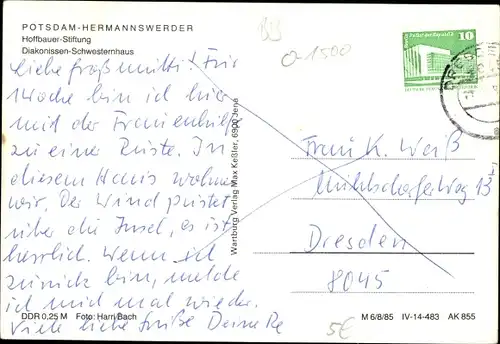 POTSDAM-HERMANNSWERDER
Hoffbauer-Stiftung
Diakonissen-Schwesternhaus
Liebe Großmutti! Für
1 Woche bin ich hier
mit der Frauenhilfe
zu einer Rüste. In
diesem Haus wohnen
wir. Der Wind pustet
über die Insel, es ist
herrlich. Wenn ich
zurück bin, melde
ich mich mal wieder.
Viele liebe Grüße Deine Re
DDR 0,25 M Foto: Harri Bach
Wartburg Verlag Max Keßler, 6900 Jena
a 1500
10
Frau K. Weiß
Dresden
8045
5€
M 6/8/85 IV-14-483 AK 855